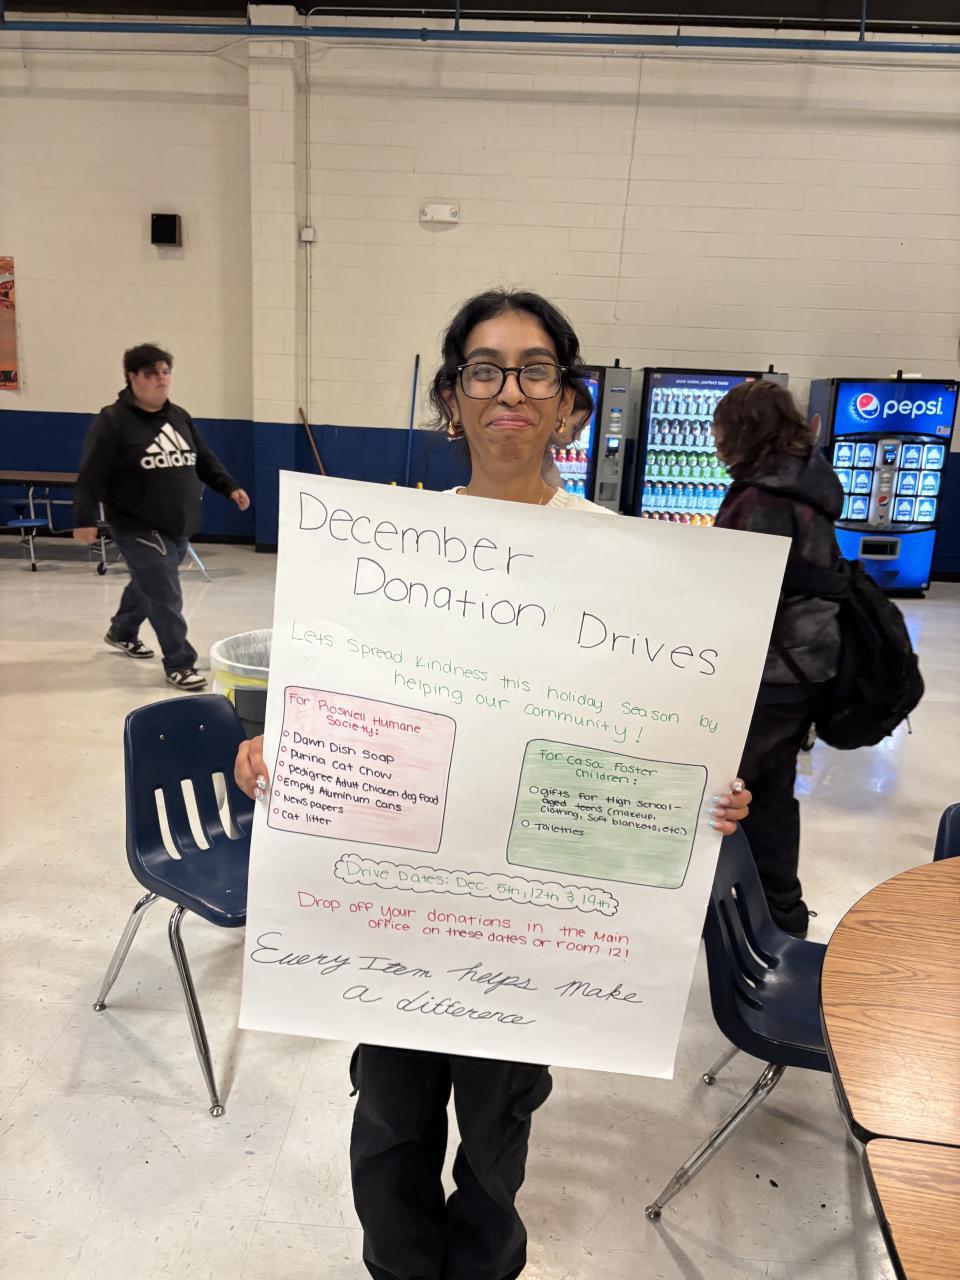 December
Donation Drives
Lets spread kindness this holiday season by
helping our community!
For Roswell Humane
Society:
Dawn Dish Soap
Purina Cat Chow
Pedigree Adult Chicken dog food
Empty Aluminum Cans
Newspapers
Cat litter
For Casa Foster
Children:
gifts for High School-
aged teens (makeup,
clothing, soft blankets, etc.)
Toiletries
Drive Dates: Dec. 5th, 12th & 19th
Drop off your donations in the Main
office on these dates or room 12!
Every Item helps make
a difference
adidas
pure water, perfect taste
pepsi